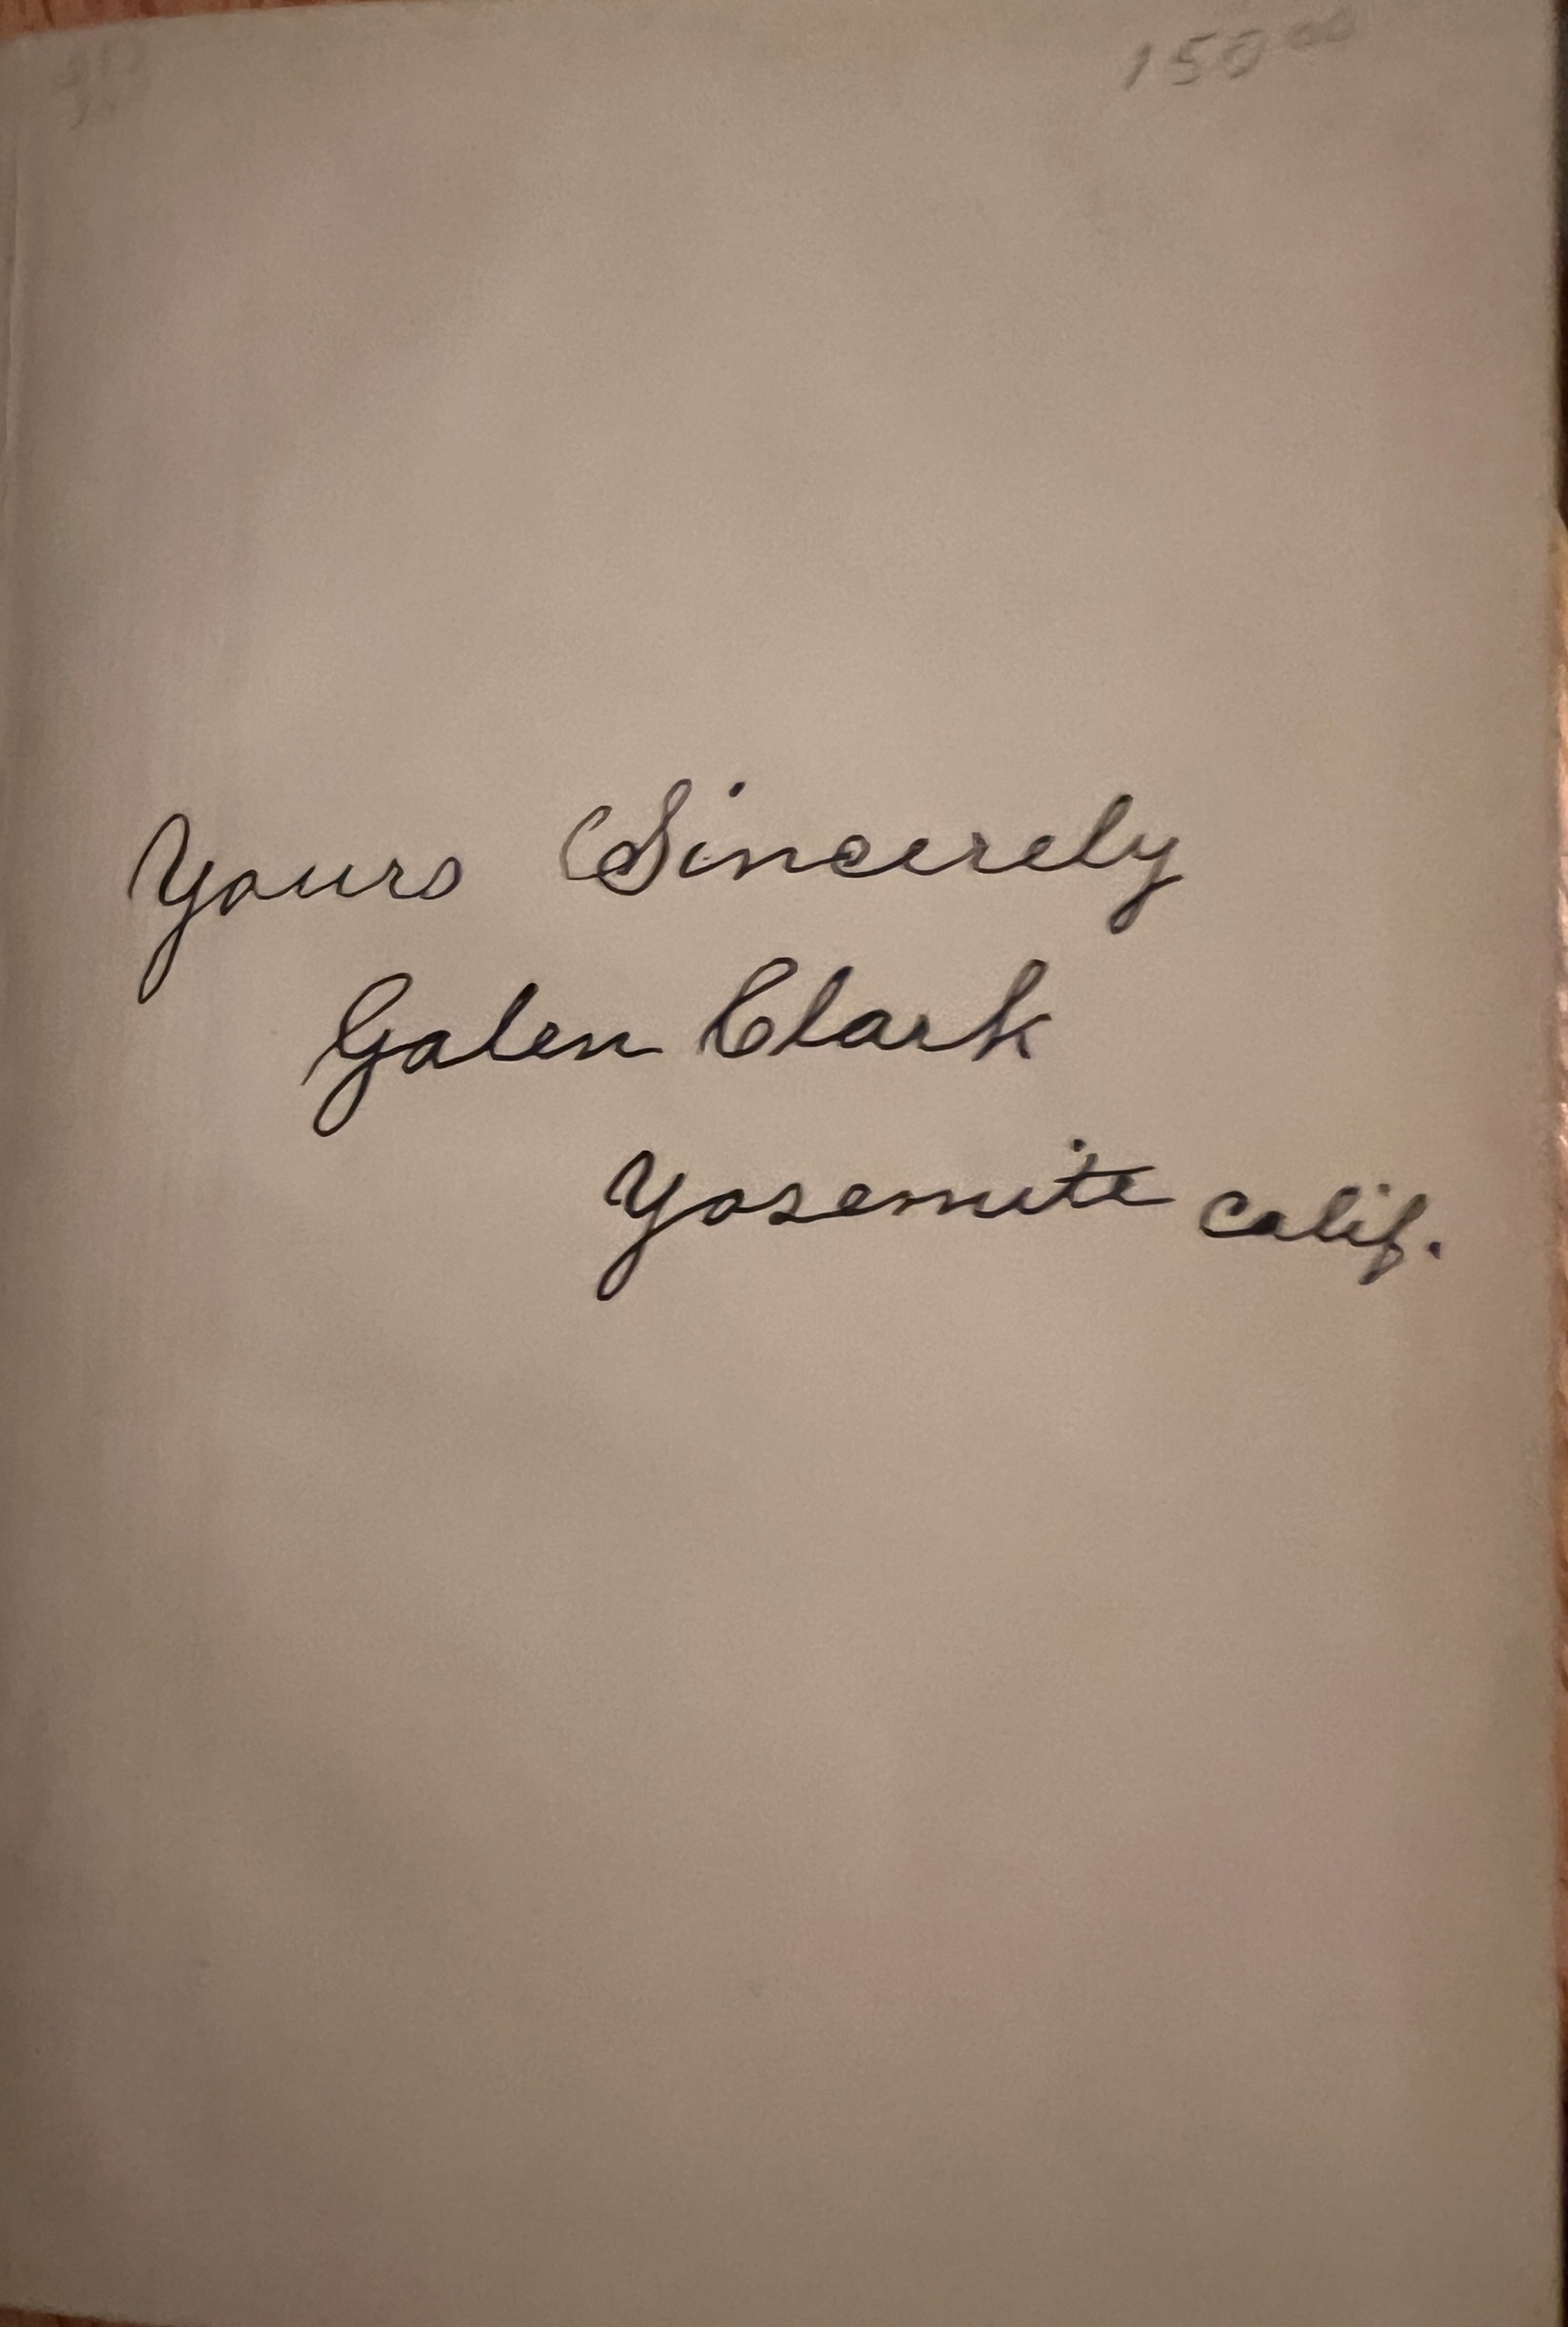 150 00
Yours Sincerely
Galen Clark
Yosemite Calif.